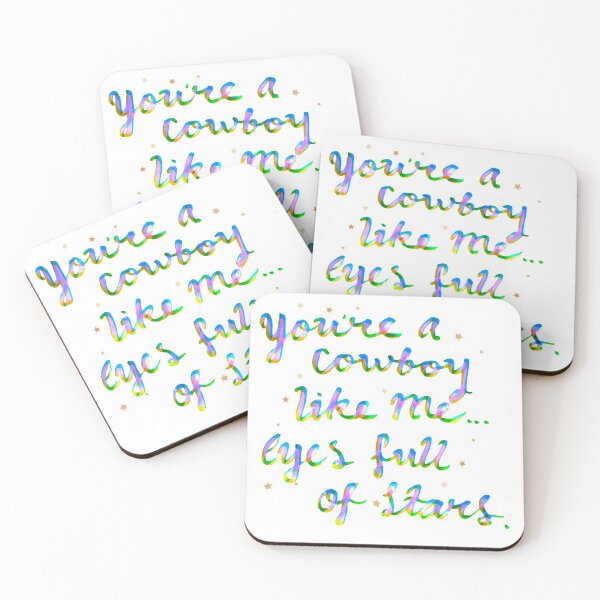 You're a
cowboy
like me
You're a
cowboy
like me...
eyes full
You're a
cowboy
like me...
eyes full
of
You're a
cowboy
like me...
eyes full
of stars.